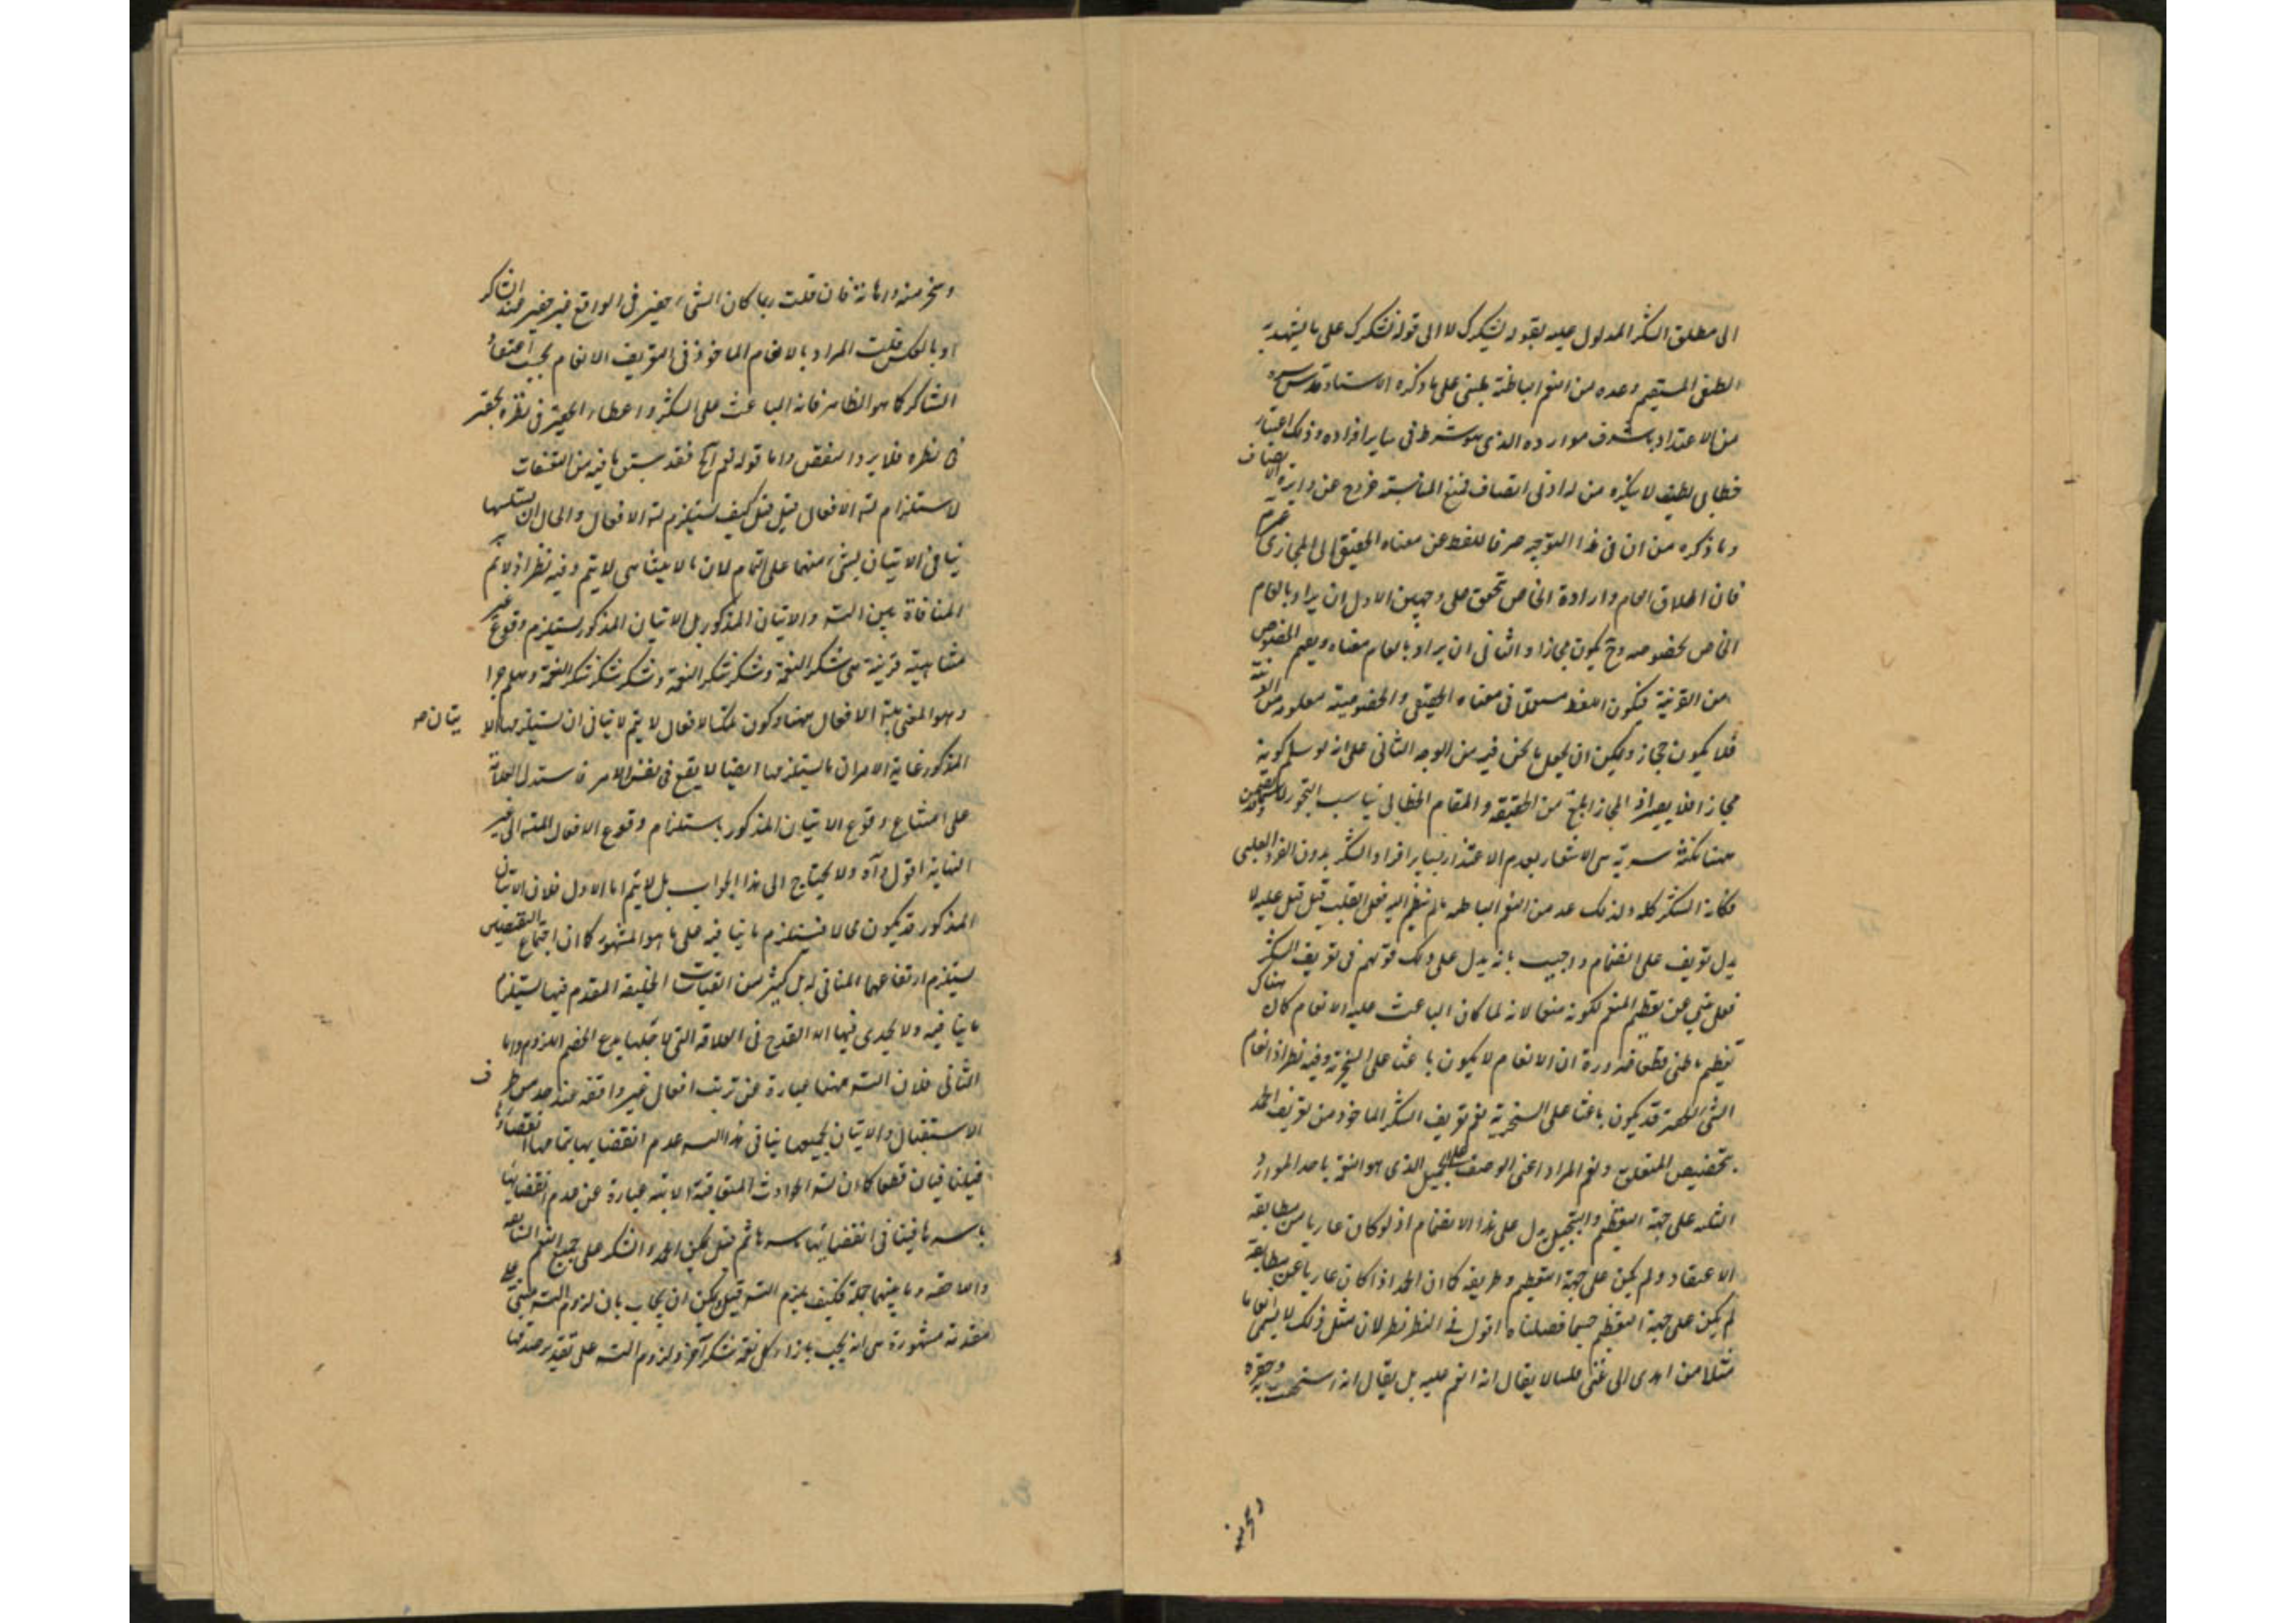 الى مطلق الشكر المدلول عليه بقوله نشكرك لا الى قوله نشكرك على ما
المستقيم وعده من النعم الباطنة مبنى على ما ذكره الاستاد قدس سره
من الاعتداد باشرف موارده الذى هو شرط فى ساير افراده وذلك اعتبار
خطابى لطيف لا ينكره من له ادنى انصاف فمنع المناسبة خروج عن دايرة الانصاف
وما ذكره من ان فى هذا التوجيه صرفا للفظ عن معناه الحقيقى الى المجازى
فان اطلاق العام وارادة الخاص تحقق على وجهين الاول ان يراد بالعام
الخاص بخصوصه وح يكون مجازا والثانى ان يراد بالعام معناه ويفهم الخصوص
من القرينة فيكون اللفظ مستعملا فى معناه الحقيقى والخصوصية معلومة من القرينة
فلا يكون مجازا ويمكن ان يجعل ما نحن فيه من الوجه الثانى على انه لو سلم كونه
مجازا فلا يضر اذ المجاز ابلغ من الحقيقة والمقام الخطابى يناسب التجوز
ههنا نكتة سرية هى الاشعار بعدم الاعتداد بساير افراد الشكر بدون الفرد القلبى
فكانه الشكر كله ولذلك عد من النعم الباطنه ما لم ينضم اليه فعل القلب قيل قيل عليه لا
يدل تعريف على انضمام واجيب بانه يدل على ذلك قولهم فى تعريف الشكر
فعل ينبى عن تعظيم المنعم لكونه منعما لانه لما كان الباعث عليه الانعام كان هناك
تعظيم باطنى قطعا ضرورة ان الانعام لا يكون باعثا على السخرية وفيه نظر اذ انعام
الشئ الحقير قد يكون باعثا على السخرية نعم تعريف الشكر الماخوذ من تعريف الحمد
بتخصيص المتعلق وتعم المراد اعنى الوصف على الجميل الذى هو النعمة باحد الموارد
الثلثه على جهة التعظيم والتبجيل يدل على هذا الانضمام اذ لو كان عاريا عن مطابقة
الاعتقاد ولم يكن على جهة التعظيم وطريقه كما ان الحمد اذا كان عاريا عن مطابقة
لم يكن على جهة التعظيم حسبما فصلناه اقول فى النظر نظر لان مثل ذلك لا يسمى انعاما
مثلا من اهدى الى غنى فلسا لا يقال انه انعم عليه بل يقال انه استخف به وحقره
وسخر منه
وسخر منه واهانه فان قلت ربما كان الشئ حقير فى الواقع غير حقير عند الشاكر
او بالعكس قلت المراد بالانعام الماخوذ فى التعريف الانعام بحسب اعتقاد
الشاكر كما هو الظاهر فانه الباعث على الشكر واعطاء الحقير فى نظره تحقير
فى نظره فلا يرد النقض واما قوله نعم اه فقد سبق ما فيه من
لاستلزام لته الافعال قيل قيل كيف يستلزم لته الافعال والحال ان تسلسلها
ينافى الاتيان بشئ منها على التمام لان ما لا يتناهى لا يتم وفيه نظر اذ لا نم
المنافاة بين الته والاتيان المذكور بل الاتيان المذكور يستلزم وقوع غير
متناهية قرينة هى شكر النعمة وشكر شكر النعمة وشكر شكر شكر النعمة وهلم جرا
وهو المعنى بته الافعال ههنا وكون تلك الافعال لا يتم لا ينافى ان يستلزمها الا
يتان صح
المذكور غاية الامر ان ما يستلزمها ايضا لا يقع فى نفس الامر فاستدل العلامة
على امتناع وقوع الاتيان المذكور باستلزام وقوع الافعال المته الى غير
النهاية اقول اه ولا يحتاج الى هذا الجواب بل لا يتم اما الاول فلان الاتيان
المذكور قد يكون محالا فيستلزم ما ينافيه على ما هو المشهور كما ان اجتماع النقيضين
يستلزم ارتفاعهما المنافى له بل كثير من القياسات الخلفيه المقدم فيها يستلزم
ما ينافيه ولا يجدى فيها الا القدح فى العلاقة التى لاجلها يدعى الخصم اللزوم واما
الثانى فلان الته ههنا عبارة عن ترتب افعال غير واقفة عند حد من طرف
الاستقبال والاتيان بجميعها ينافى هذا الته عدم انقضايها بتمامها انقضاءها
فيتنافيان قطعا كما ان لته الحوادث المتعاقبة الابديه عبارة عن عدم انقضائها
باسرها فينافى انقضائها باسرها ثم قيل يمكن الحمد والشكر على جميع النعم السابقه
واللاحقه وما بينهما جملة فكيف يلزم الته قيل ويمكن ان يجاب بان لزوم الته مبنى على
مقدمة مشهورة هى انه يجب بازاء كل نعمة شكر آخر ولزوم الته على تقدير صدقها